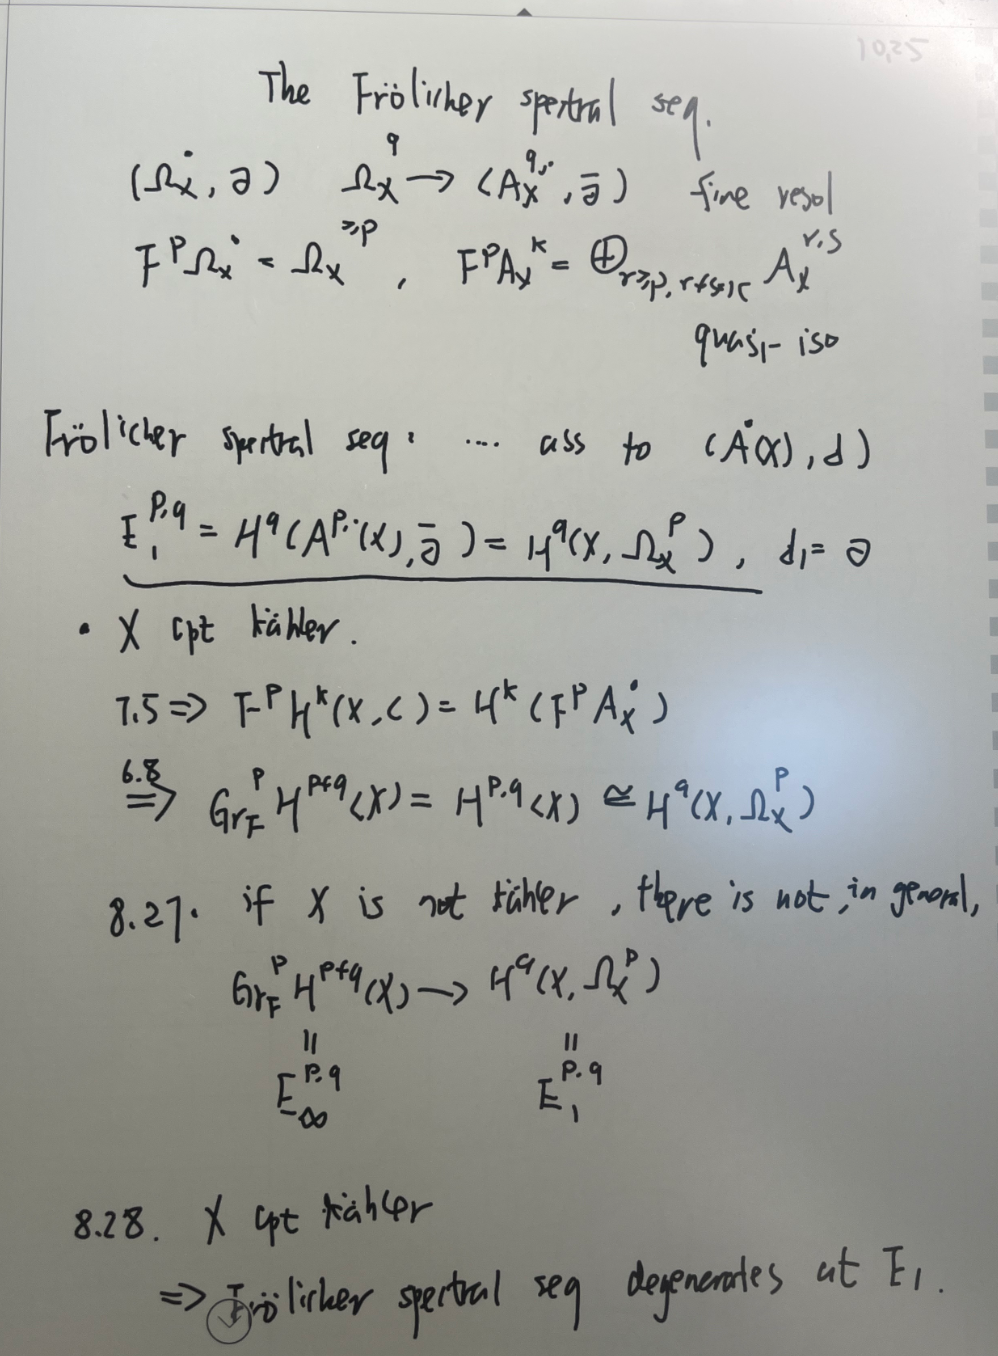 10,25
The Frölicher spectral seq.
(Ω_X^•, ∂) Ω_X^q → (A_X^{q,•}, ∂̄) fine resol
F^p Ω_X^• = Ω_X^{≥p}, F^p A_X^k = ⊕_{r≥p, r+s=k} A_X^{r,s}
quasi-iso
Frölicher spectral seq: .... ass to (A^•(X), d)
E_1^{p,q} = H^q(A^{p,•}(X), ∂̄) = H^q(X, Ω_X^p), d_1 = ∂
• X cpt kähler.
7.5 ⇒ F^p H^k(X, C) = H^k(F^p A_X^•)
6.8 ⇒ Gr_F^p H^{p+q}(X) = H^{p,q}(X) ≅ H^q(X, Ω_X^p)
8.27. if X is not kähler, there is not, in general,
Gr_F^p H^{p+q}(X) → H^q(X, Ω_X^p)
|| ||
E_∞^{p,q} E_1^{p,q}
8.28. X cpt kähler
⇒ Frölicher spectral seq degenerates at E_1.